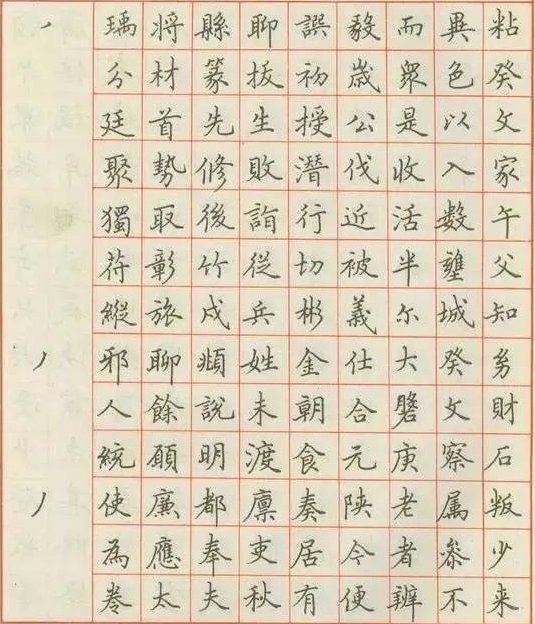 粘癸文家午父知財石叛少来
異色以入數壟城癸文察属叅不
而眾是收活半尔大磐庚老者辨
毅歲公伐近被義仕合元陝今便
譔初授潛行切彬金朝食奏居有
聊拔生敗詣從兵姓未渡廩吏秋
縣篆先修後竹戍頫說明都奉夫
將材首勢取彰旅聊餘願廉應太
瑀分廷聚獨苻縱邪人統使為卷